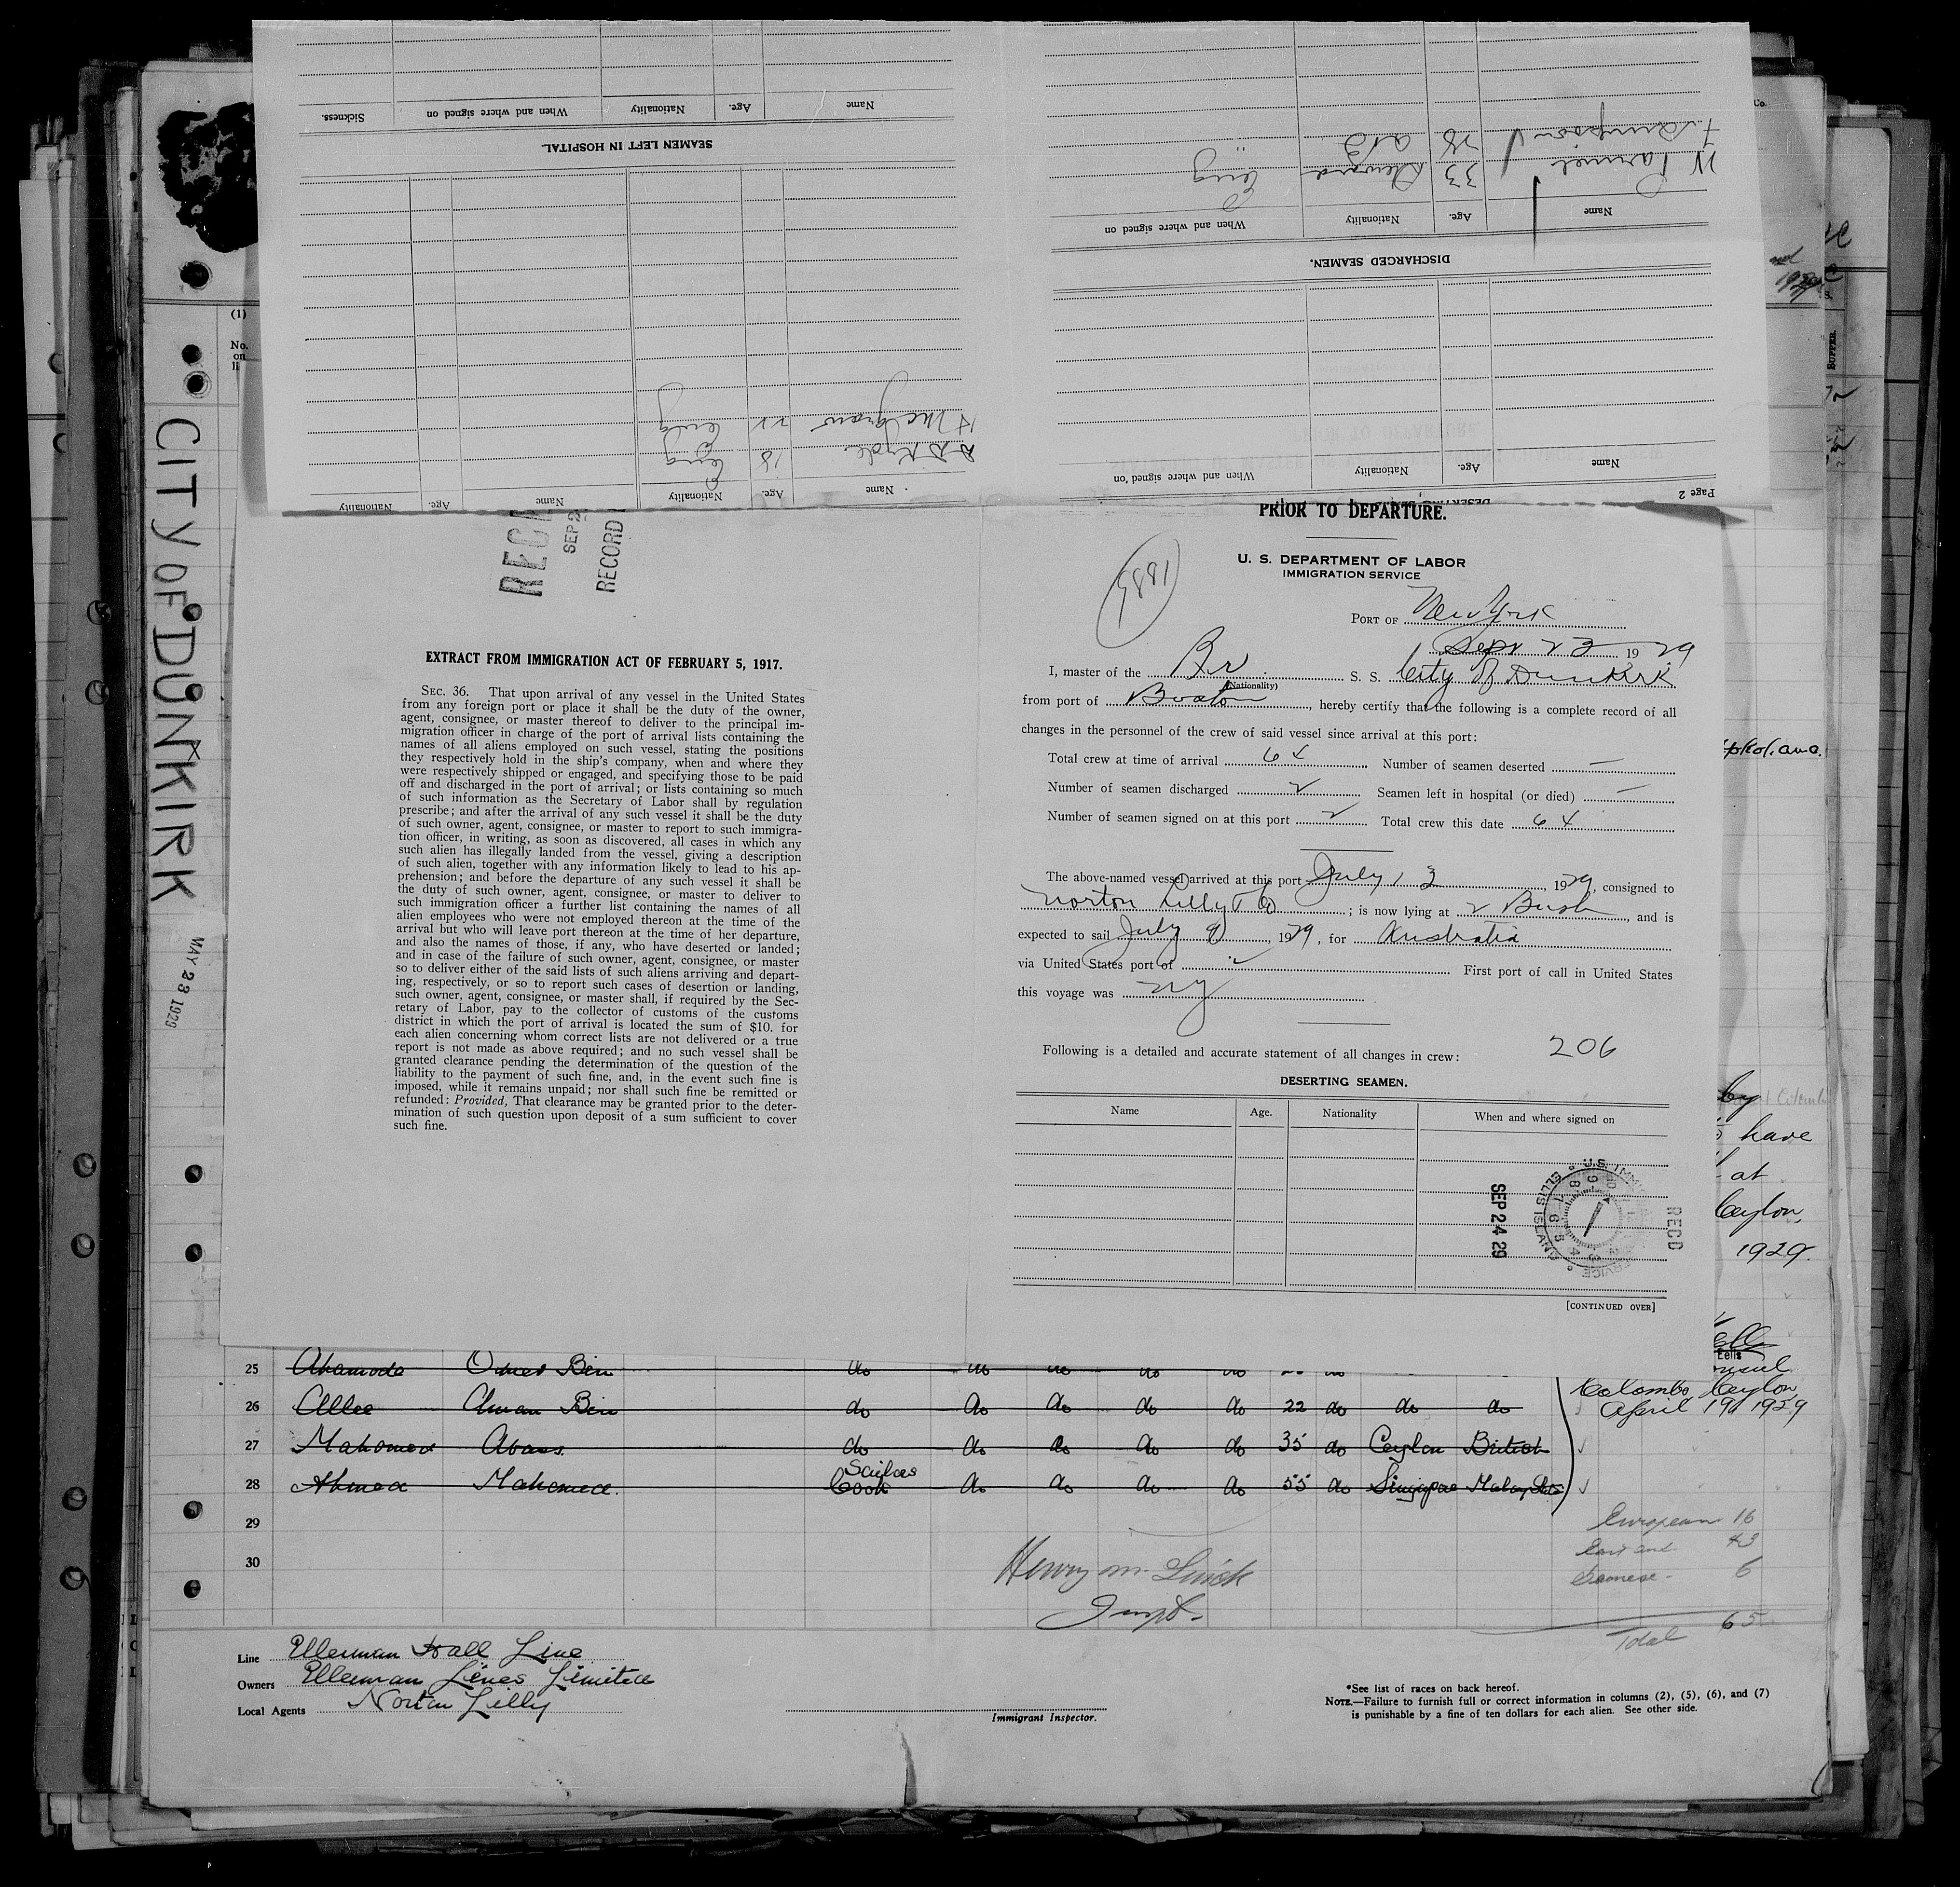 Page 2
Name Age. Nationality When and where signed on
DISCHARGED SEAMEN.
Name Age. Nationality When and where signed on
33 Eng
F. Simpson 28 AB "
Name Age. Nationality Name Age. Nationality
18 Eng
H McGraw 22 Eng
SEAMEN LEFT IN HOSPITAL.
Name Age. Nationality When and where signed on Sickness.
(1)
No.
on
CITY OF DUNKIRK
MAY 28 1929
SEP 2
RECORD
EXTRACT FROM IMMIGRATION ACT OF FEBRUARY 5, 1917.
SEC. 36. That upon arrival of any vessel in the United States
from any foreign port or place it shall be the duty of the owner,
agent, consignee, or master thereof to deliver to the principal im-
migration officer in charge of the port of arrival lists containing the
names of all aliens employed on such vessel, stating the positions
they respectively hold in the ship's company, when and where they
were respectively shipped or engaged, and specifying those to be paid
off and discharged in the port of arrival; or lists containing so much
of such information as the Secretary of Labor shall by regulation
prescribe; and after the arrival of any such vessel it shall be the duty
of such owner, agent, consignee, or master to report to such immigra-
tion officer, in writing, as soon as discovered, all cases in which any
such alien has illegally landed from the vessel, giving a description
of such alien, together with any information likely to lead to his ap-
prehension; and before the departure of any such vessel it shall be
the duty of such owner, agent, consignee, or master to deliver to
such immigration officer a further list containing the names of all
alien employees who were not employed thereon at the time of the
arrival but who will leave port thereon at the time of her departure,
and also the names of those, if any, who have deserted or landed;
and in case of the failure of such owner, agent, consignee, or master
so to deliver either of the said lists of such aliens arriving and depart-
ing, respectively, or so to report such cases of desertion or landing,
such owner, agent, consignee, or master shall, if required by the Sec-
retary of Labor, pay to the collector of customs of the customs
district in which the port of arrival is located the sum of $10. for
each alien concerning whom correct lists are not delivered or a true
report is not made as above required; and no such vessel shall be
granted clearance pending the determination of the question of the
liability to the payment of such fine, and, in the event such fine is
imposed, while it remains unpaid; nor shall such fine be remitted or
refunded: Provided, That clearance may be granted prior to the deter-
mination of such question upon deposit of a sum sufficient to cover
such fine.
PRIOR TO DEPARTURE.
U. S. DEPARTMENT OF LABOR
IMMIGRATION SERVICE
PORT OF New York
Sept 23 1929
I, master of the Br S. S. City of Dunkirk
(Nationality)
from port of Boston, hereby certify that the following is a complete record of all
changes in the personnel of the crew of said vessel since arrival at this port:
Total crew at time of arrival 64 Number of seamen deserted —
Number of seamen discharged 2 Seamen left in hospital (or died) —
Number of seamen signed on at this port 2 Total crew this date 64
The above-named vessel arrived at this port July 13, 1929, consigned to
Norton Lilly & Co; is now lying at 2 Bush, and is
expected to sail July, 1929, for Australia
via United States port of First port of call in United States
this voyage was NY
Following is a detailed and accurate statement of all changes in crew: 206
DESERTING SEAMEN.
Name Age. Nationality When and where signed on
SEP 24 29
REC'D
U.S. IMMI SERVICE ELLIS ISLAND
[CONTINUED OVER]
by
have
at
Ceylon
1929.
25 Ahamode Omed Bin do do do do do
26 Allee Bin do do do do do 22 do do do
27 Mahomed Abass do do do do do 35 do Ceylon British
28 Ahmed Mahomed Sailors Cook do do do do 55 do Singapore
29
30
Colombo, Ceylon
April 19 1929
European 16
43
6
Total 65
Henry M.
Inspt.
Line Ellerman Hall Line
Owners Ellerman Lines Limited
Local Agents Norton Lilly
Immigrant Inspector.
*See list of races on back hereof.
NOTE.—Failure to furnish full or correct information in columns (2), (5), (6), and (7)
is punishable by a fine of ten dollars for each alien. See other side.